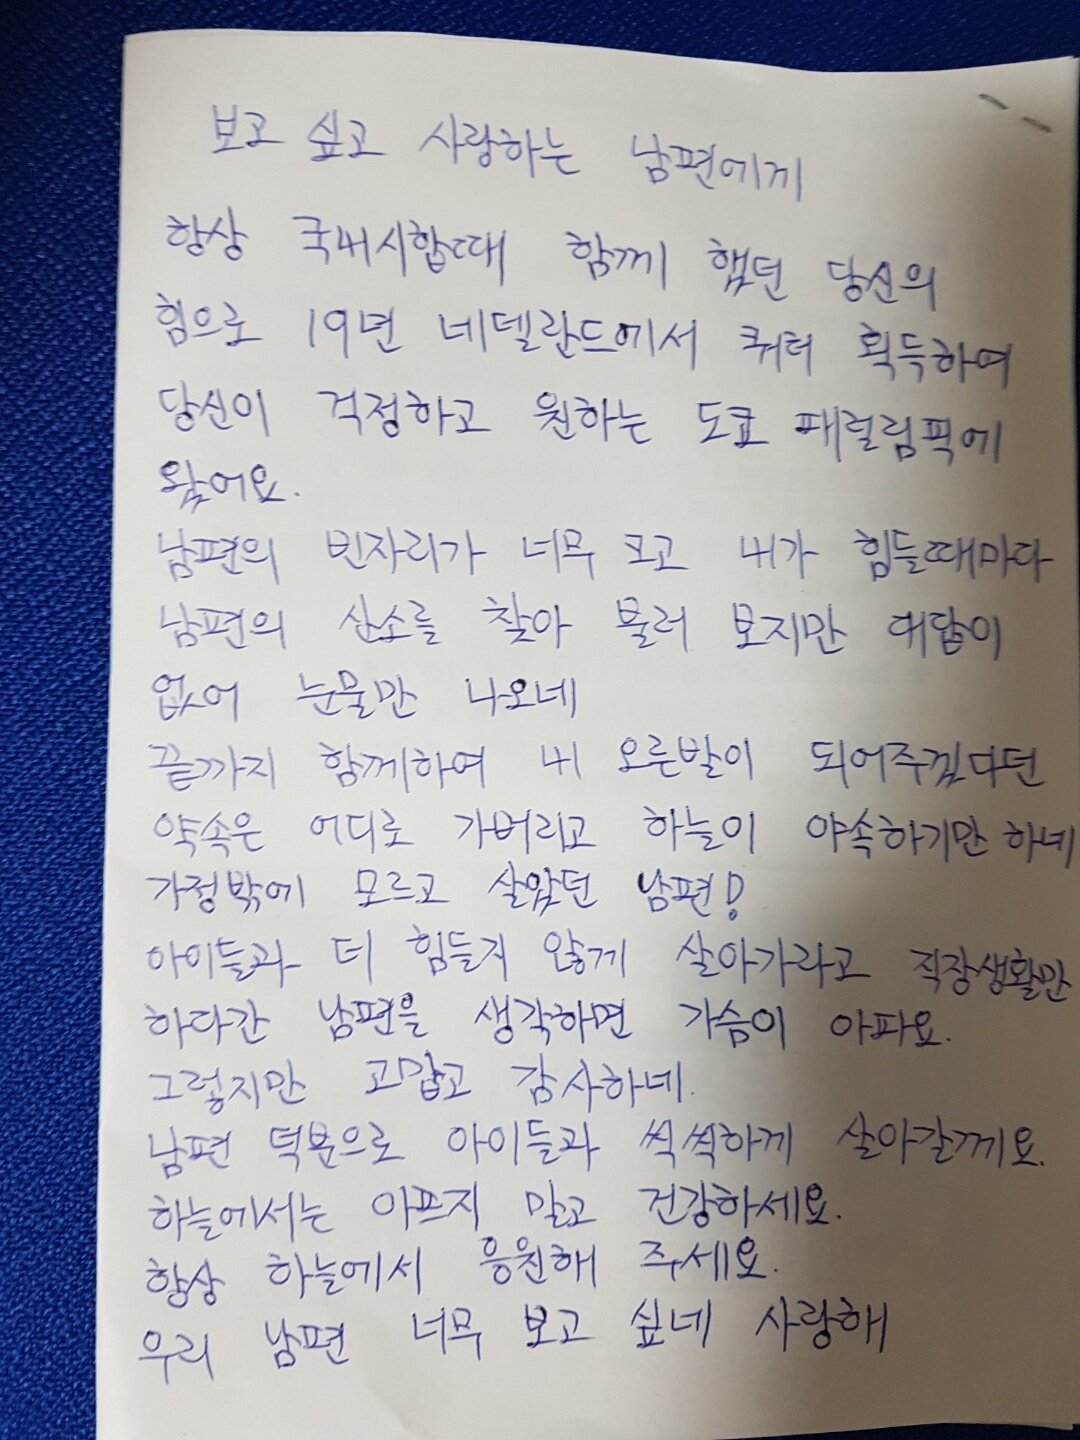 보고 싶고 사랑하는 남편에게
항상 국내시합때 함께 했던 당신의
힘으로 19년 네델란드에서 쿼터 획득하여
당신이 걱정하고 원하는 도쿄 패럴림픽에
왔어요.
남편의 빈자리가 너무 크고 내가 힘들때마다
남편의 산소를 찾아 물러 보지만 대답이
없어 눈물만 나오네
끝까지 함께하여 내 오른발이 되어주겠다던
약속은 어디로 가버리고 하늘이 야속하기만 하네
가정밖에 모르고 살았던 남편!
아이들과 더 힘들지 않게 살아가라고 직장생활만
하다간 남편을 생각하면 가슴이 아파요.
그렇지만 고맙고 감사하네.
남편 덕분으로 아이들과 씩씩하게 살아갈께요.
하늘에서는 아프지 말고 건강하세요.
항상 하늘에서 응원해 주세요.
우리 남편 너무 보고 싶네 사랑해